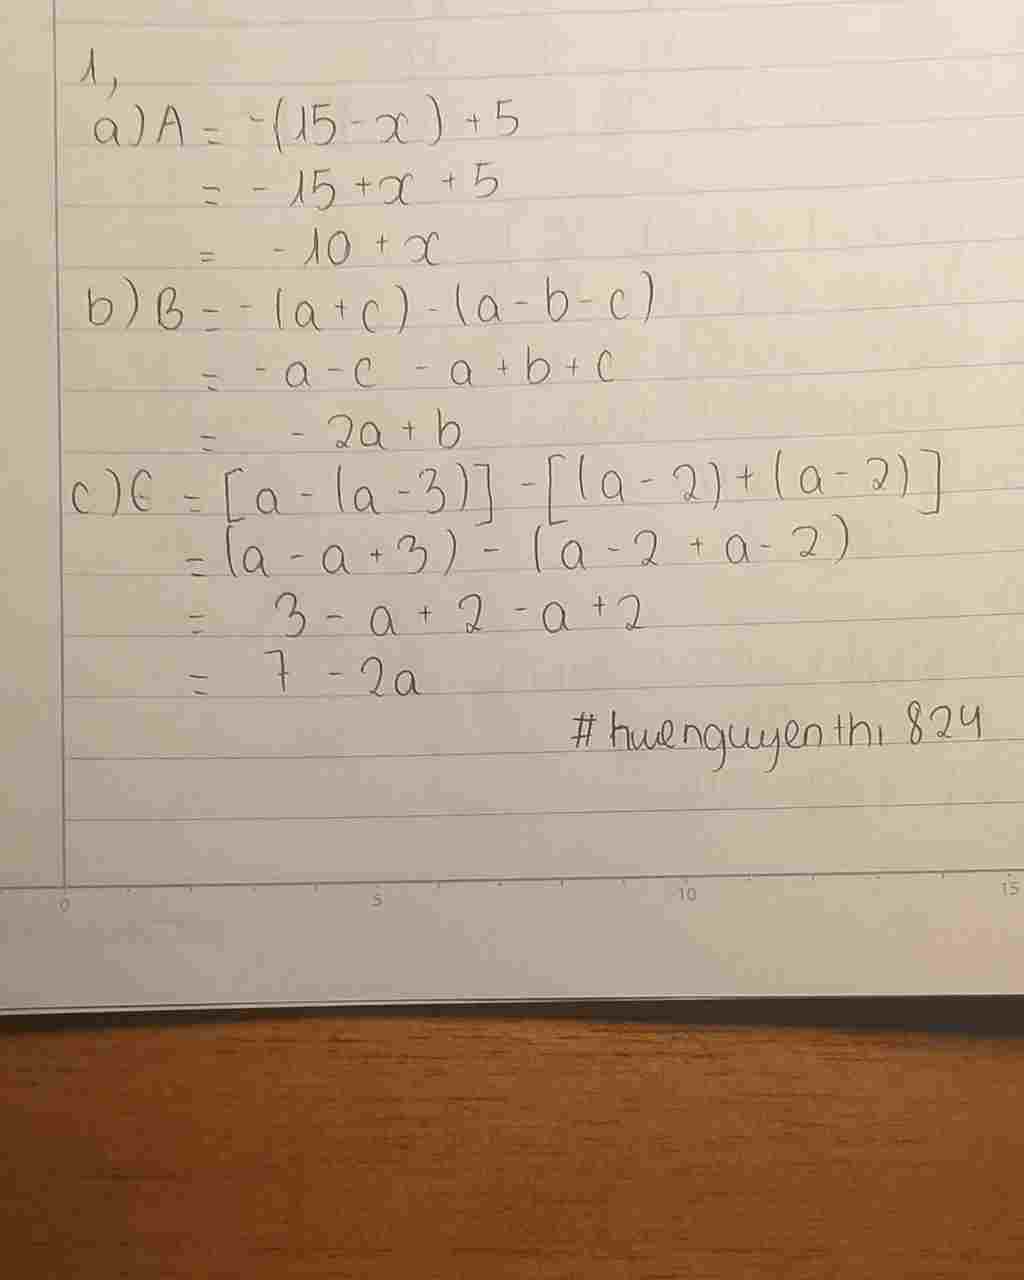 1,
a) A = -(15 - x) + 5
= - 15 + x + 5
= - 10 + x
b) B = - (a + c) - (a - b - c)
= - a - c - a + b + c
= - 2a + b
c) C = [a - (a - 3)] - [(a - 2) + (a - 2)]
= (a - a + 3) - (a - 2 + a - 2)
= 3 - a + 2 - a + 2
= 7 - 2a
# huenguyenthi 824
0 5 10 15